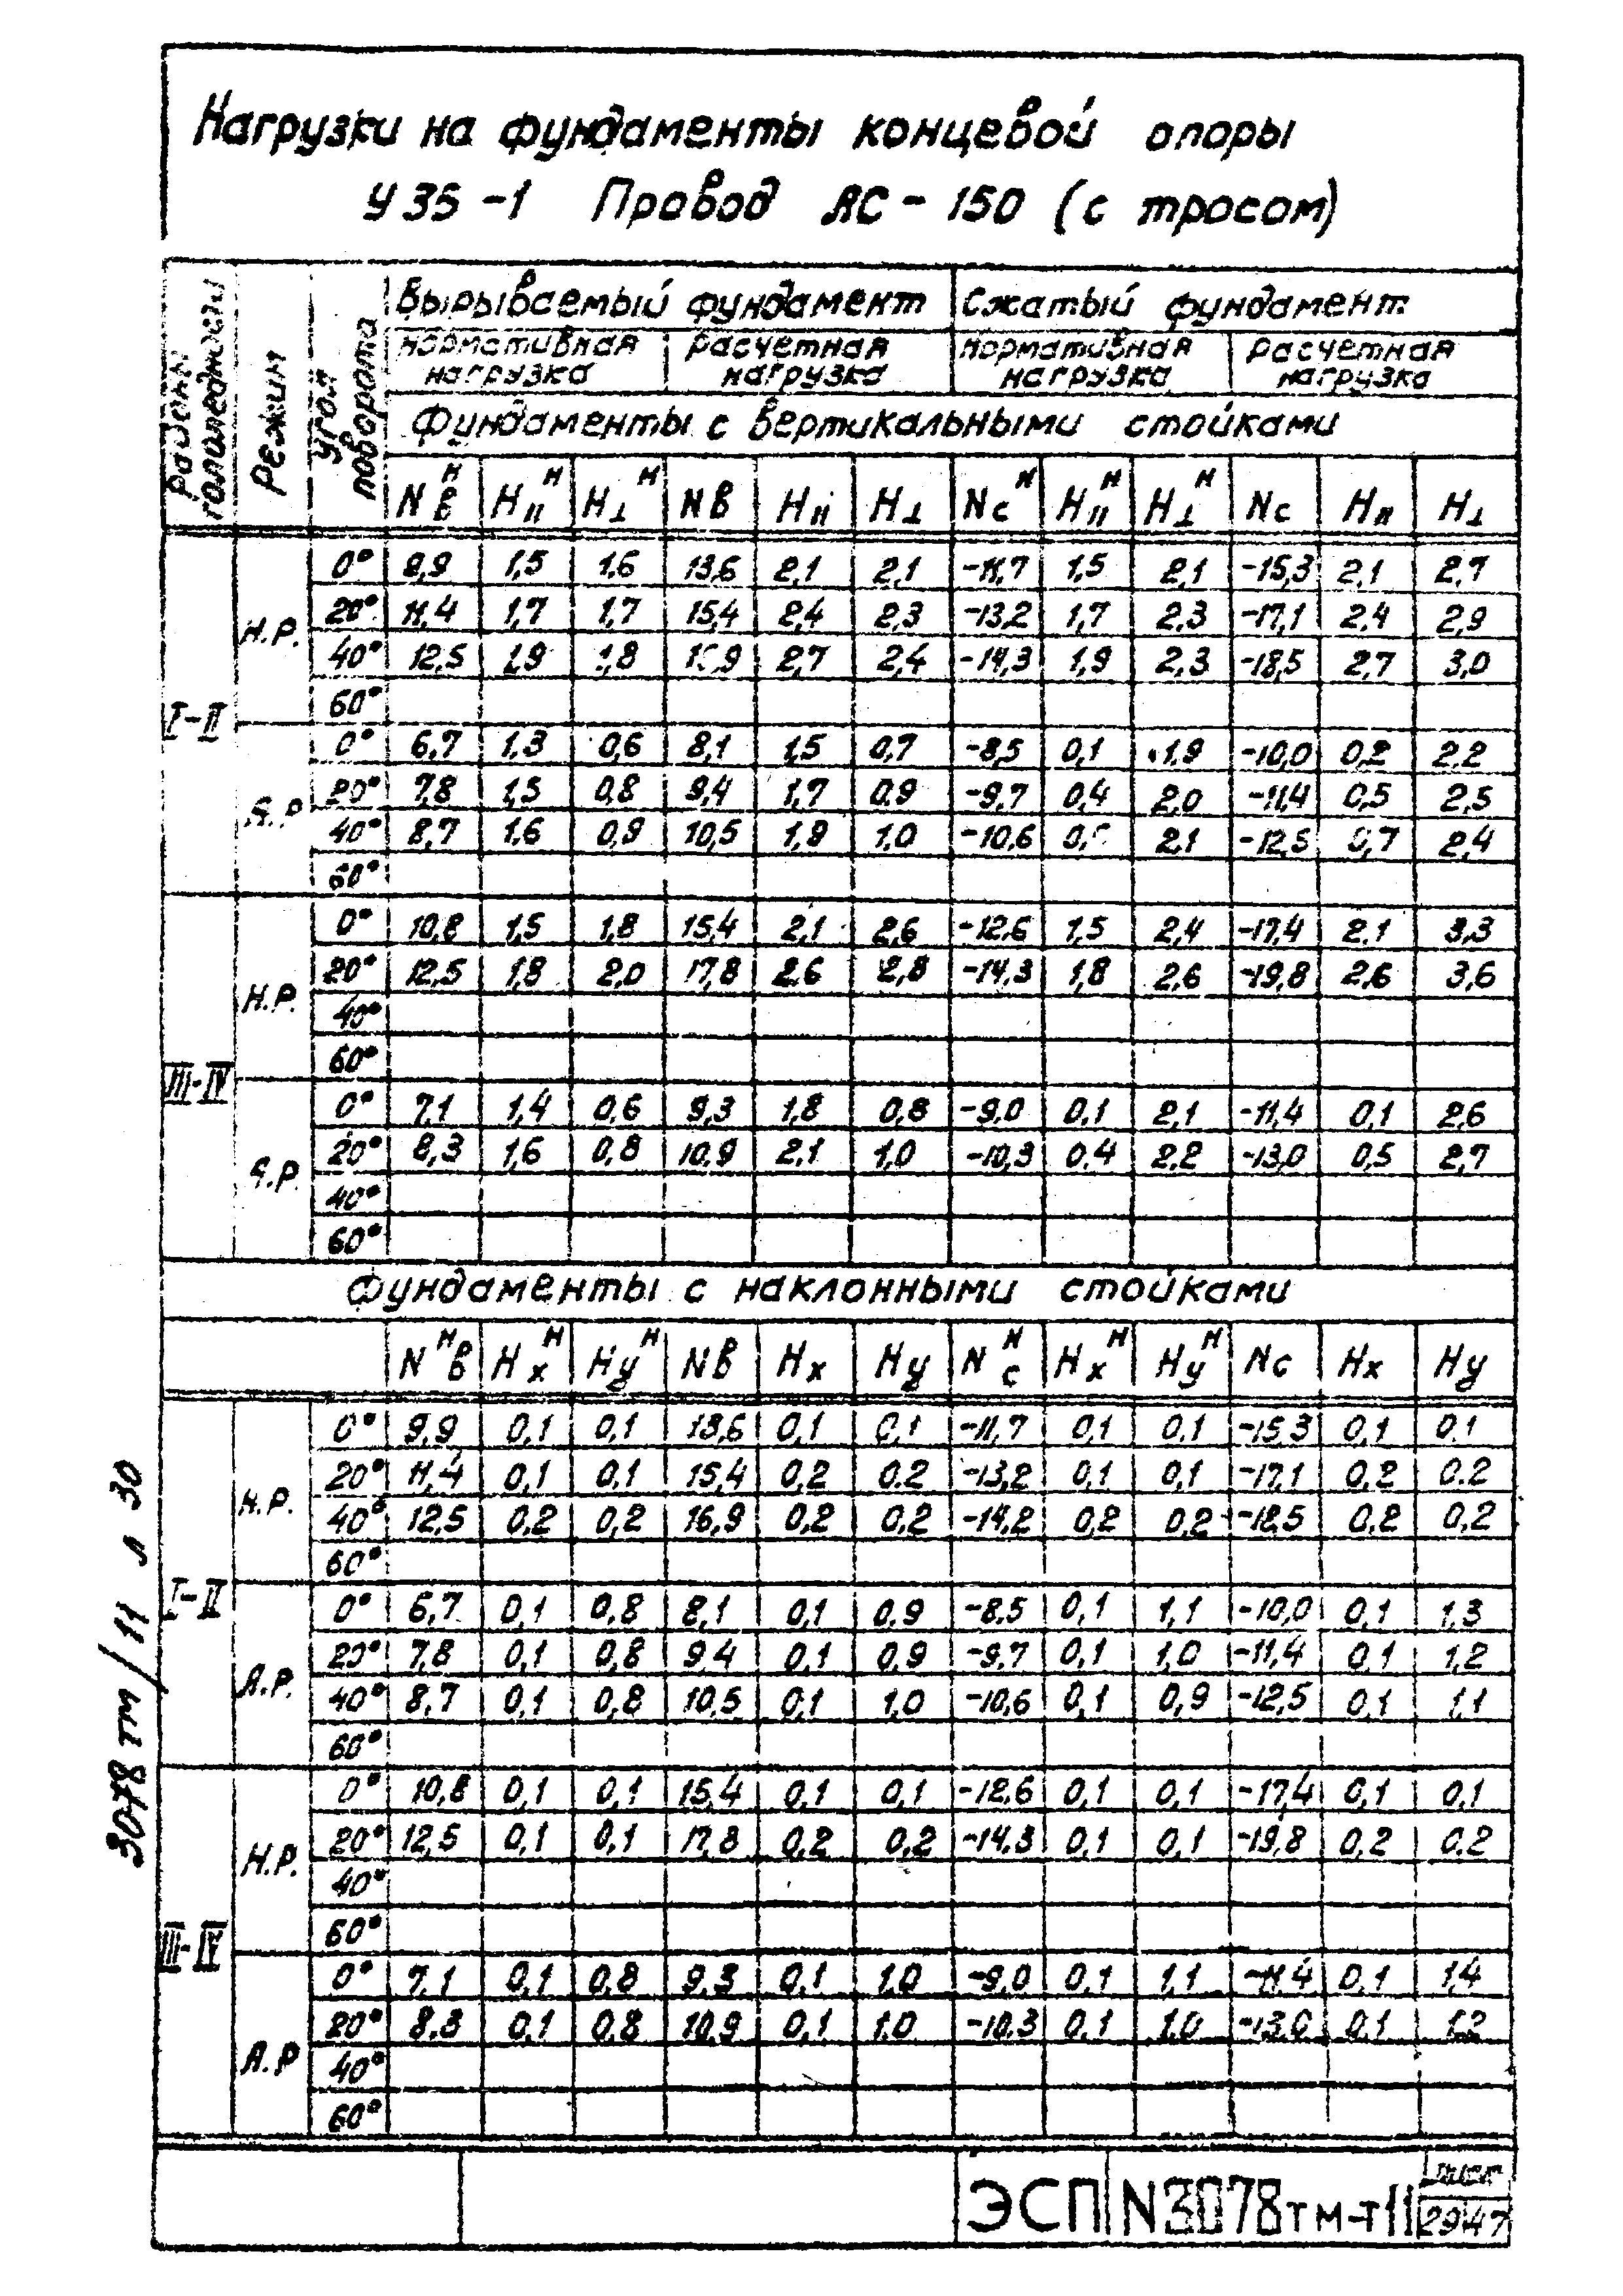 Нагрузки на фундаменты концевой опоры
У35-1 Провод АС-150 (с тросом)
Районы гололедности Режим Угол поворота Вырываемый фундамент Сжатый фундамент
нормативная нагрузка расчетная нагрузка нормативная нагрузка расчетная нагрузка
Фундаменты с вертикальными стойками
Nвᴴ H||ᴴ H⊥ᴴ Nв H|| H⊥ Ncᴴ H||ᴴ H⊥ᴴ Nc H|| H⊥
I-II Н.Р. 0° 9,9 1,5 1,6 13,6 2,1 2,1 -11,7 1,5 2,1 -15,3 2,1 2,7
20° 11,4 1,7 1,7 15,4 2,4 2,3 -13,2 1,7 2,3 -17,1 2,4 2,9
40° 12,5 1,9 1,8 2,7 2,4 -14,3 1,9 2,3 -18,5 2,7 3,0
60°
А.Р 0° 6,7 1,3 0,6 8,1 1,5 0,7 -8,5 0,1 1,9 -10,0 0,2 2,2
20° 7,8 1,5 0,8 9,4 1,7 0,9 -9,7 0,4 2,0 -11,4 0,5 2,5
40° 8,7 1,6 0,9 10,5 1,9 1,0 -10,6 2,1 -12,5 0,7 2,4
60°
III-IV Н.Р. 0° 10,8 1,5 1,8 15,4 2,1 2,6 -12,6 1,5 2,4 -17,4 2,1 3,3
20° 12,5 1,8 2,0 17,8 2,6 2,8 -14,3 1,8 2,6 -19,8 2,6 3,6
40°
60°
А.Р. 0° 7,1 1,4 0,6 9,3 1,8 0,8 -9,0 0,1 2,1 -11,4 0,1 2,6
20° 8,3 1,6 0,8 10,9 2,1 1,0 -10,3 0,4 2,2 -13,0 0,5 2,7
40°
60°
Фундаменты с наклонными стойками
Nвᴴ Hxᴴ Hyᴴ Nв Hx Hy Ncᴴ Hxᴴ Hyᴴ Nc Hx Hy
I-II Н.Р. 0° 9,9 0,1 0,1 13,6 0,1 0,1 -11,7 0,1 0,1 -15,3 0,1 0,1
20° 11,4 0,1 0,1 15,4 0,2 0,2 -13,2 0,1 0,1 -17,1 0,2 0,2
40° 12,5 0,2 0,2 16,9 0,2 0,2 -14,2 0,2 0,2 -18,5 0,2 0,2
60°
А.Р. 0° 6,7 0,1 0,8 8,1 0,1 0,9 -8,5 0,1 1,1 -10,0 0,1 1,3
20° 7,8 0,1 0,8 9,4 0,1 0,9 -9,7 0,1 1,0 -11,4 0,1 1,2
40° 8,7 0,1 0,8 10,5 0,1 1,0 -10,6 0,1 0,9 -12,5 0,1 1,1
60°
III-IV Н.Р. 0° 10,8 0,1 0,1 15,4 0,1 0,1 -12,6 0,1 0,1 -17,4 0,1 0,1
20° 12,5 0,1 0,1 17,8 0,2 0,2 -14,3 0,1 0,1 -19,8 0,2 0,2
40°
60°
А.Р 0° 7,1 0,1 0,8 9,3 0,1 1,0 -9,0 0,1 1,1 -11,4 0,1 1,4
20° 8,3 0,1 0,8 10,9 0,1 1,0 -10,3 0,1 1,0 -13,0 0,1 1,2
40°
60°
3078тм/11 л 30
ЭСП N3078тм-т11 лист 29 47